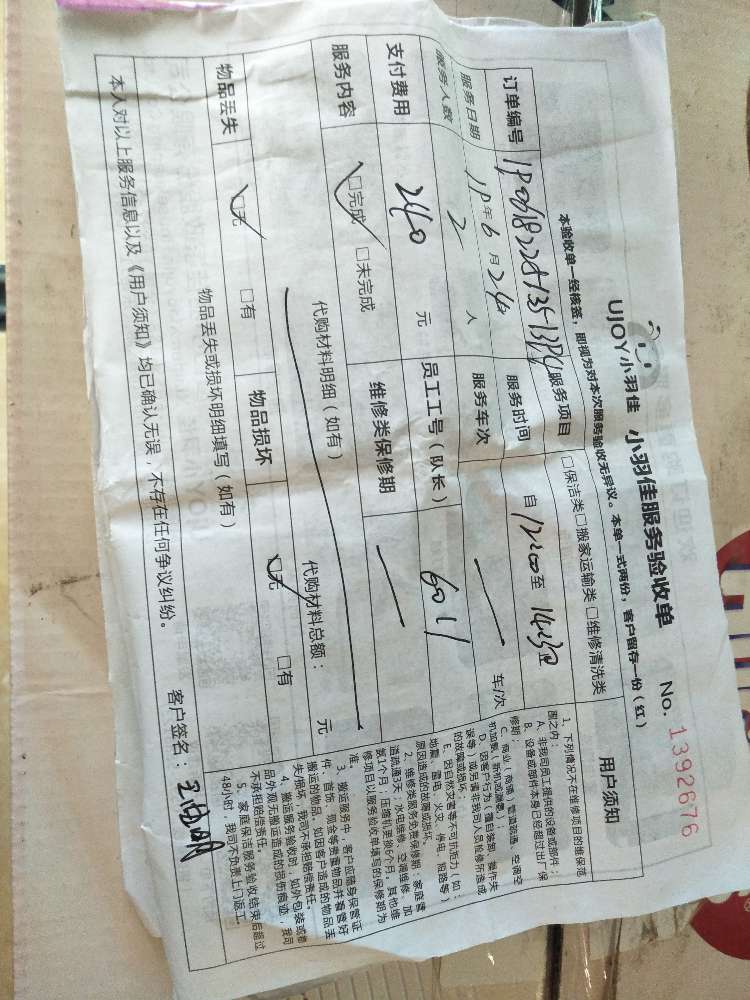 UJOY小羽佳 小羽佳服务验收单 No. 1392676
本验收单一经核签,即视为对本次服务验收无异议。本单一式两份,客户留存一份(红)
订单编号 服务项目 □保洁类□搬家运输类□维修清洗类
服务日期 年 6 月 24日 服务时间 自 12:00 至 14:30
服务人数 2 人 服务车次 车/次
支付费用 240 元 员工工号(队长) 6011
服务内容 □完成 □未完成 维修类保修期
代购材料明细(如有) 代购材料总额: 元
物品丢失 □无 □有 物品损坏 □无 □有
物品丢失或损坏明细填写(如有)
本人对以上服务信息以及《用户须知》均已确认无误,不存在任何争议纠纷。
客户签名:
用户须知
1、下列情况不在维修项目的维保范
围之内:
A、非我司员工提供的设备或部件;
B、设备或部件本身已经超过出厂保
修期;
C、商业(商铺)管道疏通、空调空
机加氟(新机或漏息);
D、因客户行为(擅自拆卸、操作失
误等)或另请非我司人员检修所造成
的故障或损坏。
E、因自然灾害等不可抗而力(如:
地震、雷电、火灾、停电、短路等)
原因造成的故障或损坏。
2、维修类服务免费保修期:家庭管
道疏通3天,水电维修、空调维修、加
氟1个月,压缩机更换6个月,其他维
修项目以服务验收单填写的保修期为
准。
3、搬运服务中,客户应随身保管证
件、首饰、现金等贵重物品并看管好
搬运的物品。如因客户造成的物品丢
失/损坏,我司不承担赔偿责任。
4、搬运服务验收时,如外包装或单
品外观无搬运造成的损伤痕迹,我司
不承担赔偿责任。
5、家庭保洁服务验收结束后超过
48小时,我司不负责上门返工。